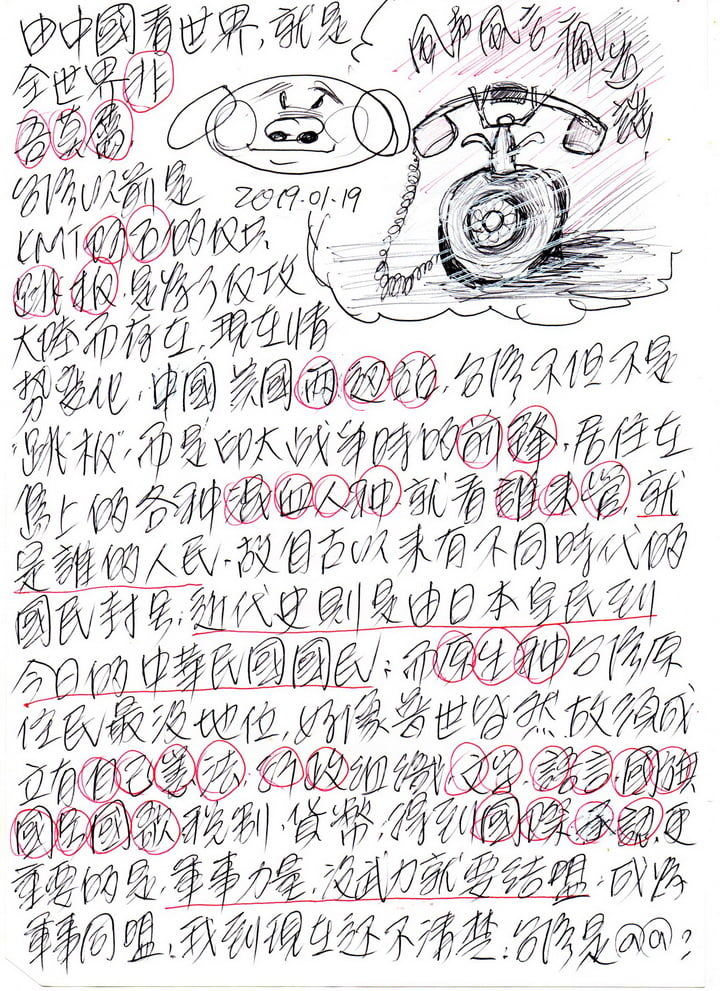 由中國看世界,就是
全世界非
吾莫屬
台灣以前是
KMT的反
跳板,是為了反攻
大陸而存在,現在情
勢變化,中國美國兩邊站,台灣不但不是
"跳板"而是印太战争時的前鋒,居住在
島上的各种混血人种,就看誰來管,就
是誰的人民,故自古以來有不同時代的
國民封号,近代史則是由日本皇民到
今日的中華民國國民;而原生种台灣原
住民最沒地位,好像普世皆然,故須成
立有自己憲法,行政組織,文字,語言,國旗
國歌,稅制,貨幣,得到國際承認,更
重要的是,軍事力量,沒武力就要結盟,成為
軍事同盟,我到現在还不清楚,台灣是@@?
風和風言瘋
2019.01.19